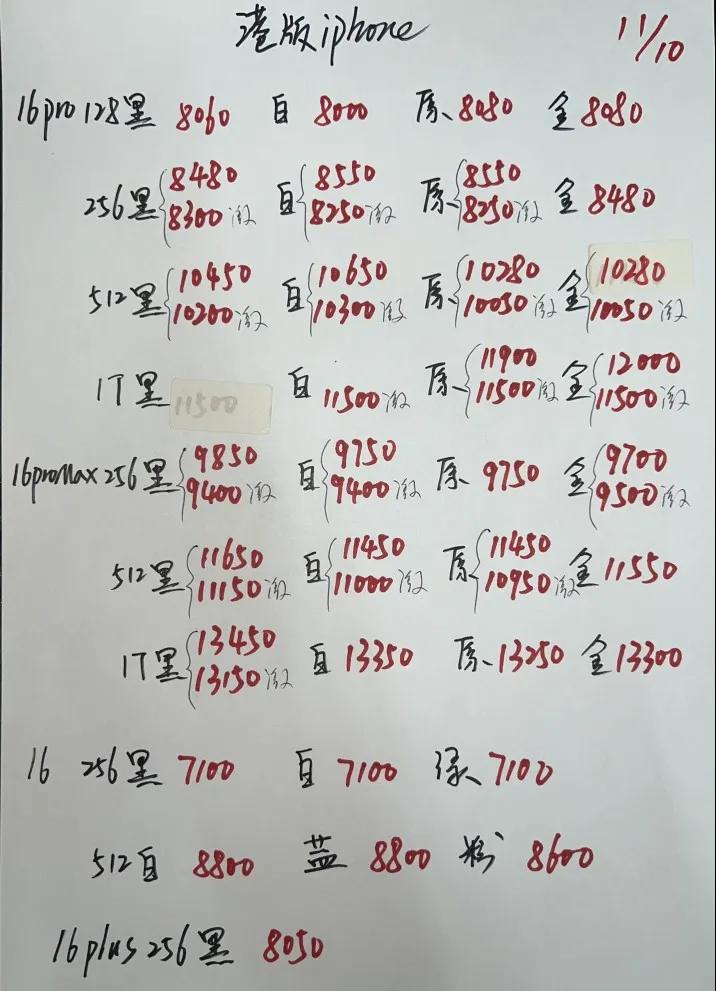 港版iphone 11/10
16pro 128黑 8060 白 8000 原 8080 金 8080
256黑 8480 8300激 白 8550 8250激 原 8550 8250激 金 8480
512黑 10450 10200激 白 10650 10300激 原 10280 10050激 金 10280 10050激
1T黑 11500 白 11500激 原 11900 11500激 金 12000 11500激
16promax 256黑 9850 9400激 白 9750 9400激 原 9750 金 9700 9500激
512黑 11650 11150激 白 11450 11000激 原 11450 10950激 金 11550
1T黑 13450 13150激 白 13350 原 13250 金 13300
16 256黑 7100 白 7100 绿 7100
512白 8800 蓝 8800 粉 8600
16plus 256黑 8050